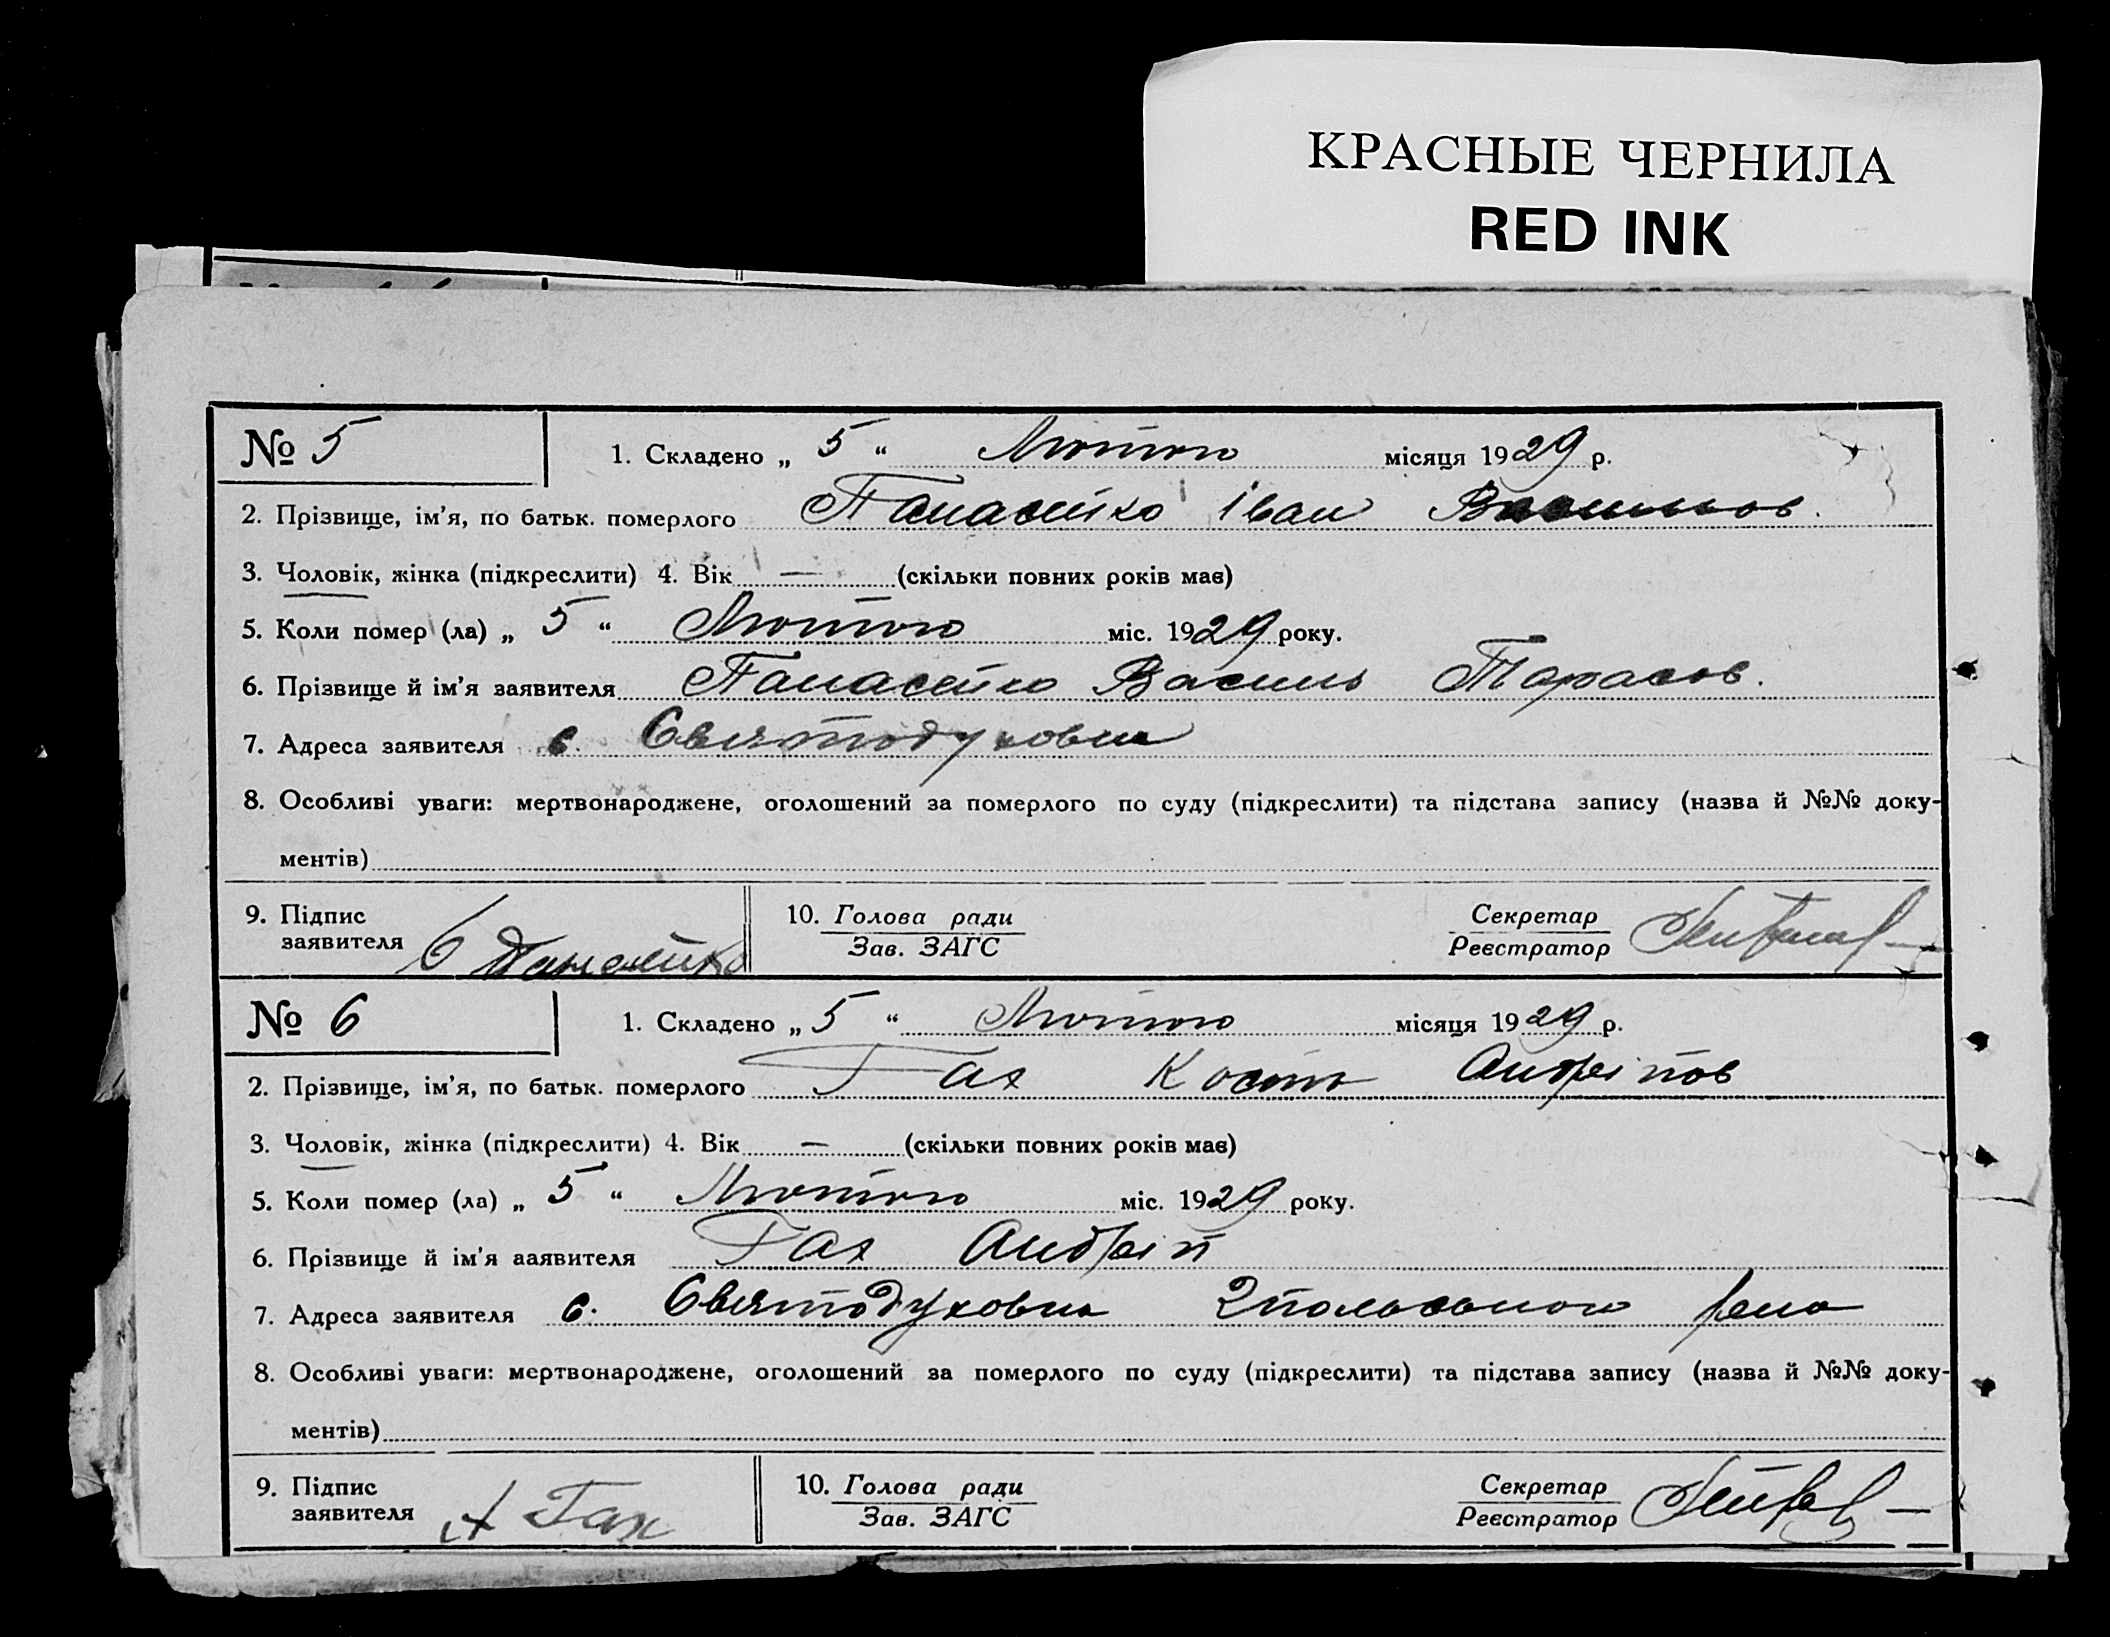 КРАСНЫЕ ЧЕРНИЛА
RED INK
№ 5
1. Складено „ 5 “ Лютого місяця 1929 р.
2. Прізвище, ім'я, по батьк. померлого Панасейко Іван Васильов.
3. Чоловік, жінка (підкреслити) 4. Вік — (скільки повних років має)
5. Коли помер (ла) „ 5 “ Лютого міс. 1929 року.
6. Прізвище й ім'я заявителя Панасейко Василь Тарасов.
7. Адреса заявителя с. Святодуховка
8. Особливі уваги: мертвонароджене, оголошений за померлого по суду (підкреслити) та підстава запису (назва й №№ доку-
ментів)
9. Підпис
заявителя
10. Голова ради
Зав. ЗАГС
Секретар
Реєстратор
№ 6
1. Складено „ 5 “ Лютого місяця 1929 р.
2. Прізвище, ім'я, по батьк. померлого Гах Кость Андріїов
3. Чоловік, жінка (підкреслити) 4. Вік — (скільки повних років має)
5. Коли помер (ла) „ 5 “ Лютого міс. 1929 року.
6. Прізвище й ім'я ааявителя Гах Андрій
7. Адреса заявителя с. Святодуховка
8. Особливі уваги: мертвонароджене, оголошений за померлого по суду (підкреслити) та підстава запису (назва й №№ доку-
ментів)
9. Підпис
заявителя А Гах
10. Голова ради
Зав. ЗАГС
Секретар
Реєстратор